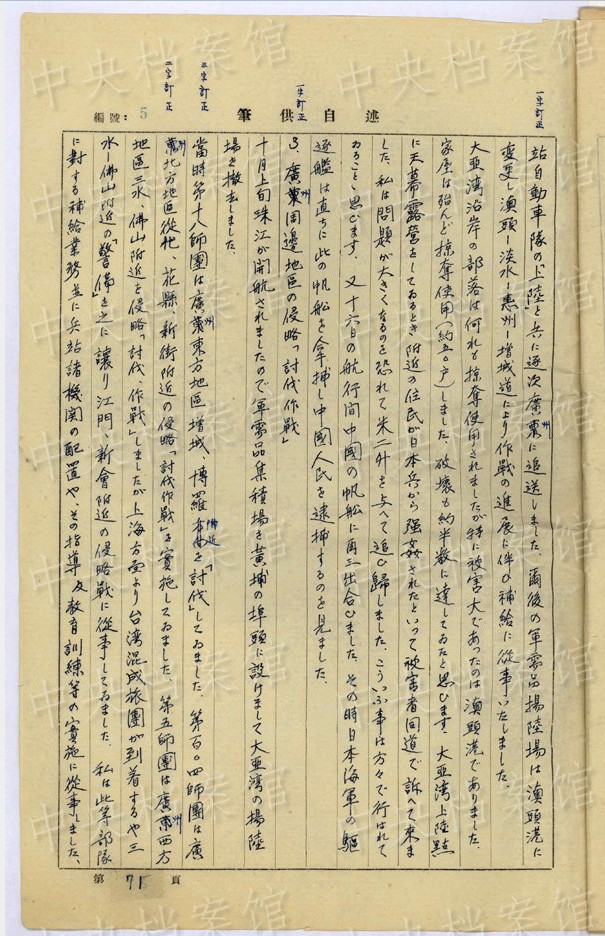 中央档案馆
一字訂正
一字訂正
二字訂正
二字訂正
筆供自述
編號：5
站自動車隊の上陸と共に逐次廣州に追送しました、爾後の軍需品揚陸場は澳頭港に
変更し澳頭ー淡水ー惠州ー増城道により作戦の進展に伴ひ補給に従事いたしました。
大亜湾沿岸の部落は何れも掠奪使用されましたが特に被害大であったのは澳頭港でありました、
家屋は殆んど掠奪使用（約五〇戸）しました、破壊も約半数に達してゐたと思ひます、大亜湾上陸點
に天幕露營をしておるとき附近の住民が日本兵から強姦されたといって被害者同道で訴へて來ま
した、私は問題が大きくなるのを恐れて米二升を与へて追ひ歸しました、こういふ事は方々で行はれて
ゐることゝ思ひます、又十六日の航行間中國の帆船に再三出合ひました、その時日本海軍の驅
逐艦は直ちに此の帆船を拿捕し中國人民を逮捕するのを見ました、
3、廣州周邊地區の侵略「討伐作戦」
十月上旬珠江が開航されましたので軍需品集積場を黄埔の埠頭に設けまして大亜湾の揚陸
場を撤去しました、
當時第十八師團は廣州東方地區増城、博羅附近を「討伐」してゐました、第百〇四師團は廣
州北方地區從化、花縣、新街附近の侵略「討伐作戦」を實施してゐました、第五師團は廣州西方
地區三水、佛山附近を侵略「討伐、作戦」しましたが上海方面より台湾混成旅團が到着するや三
水ー佛山附近の「警備」を之に譲り江門、新會附近の侵略戦に従事してゐました、私は此等部隊
に對する補給業務並に兵站諸機関の配置や、その指導及教育訓練等の實施に従事しました、
第71頁